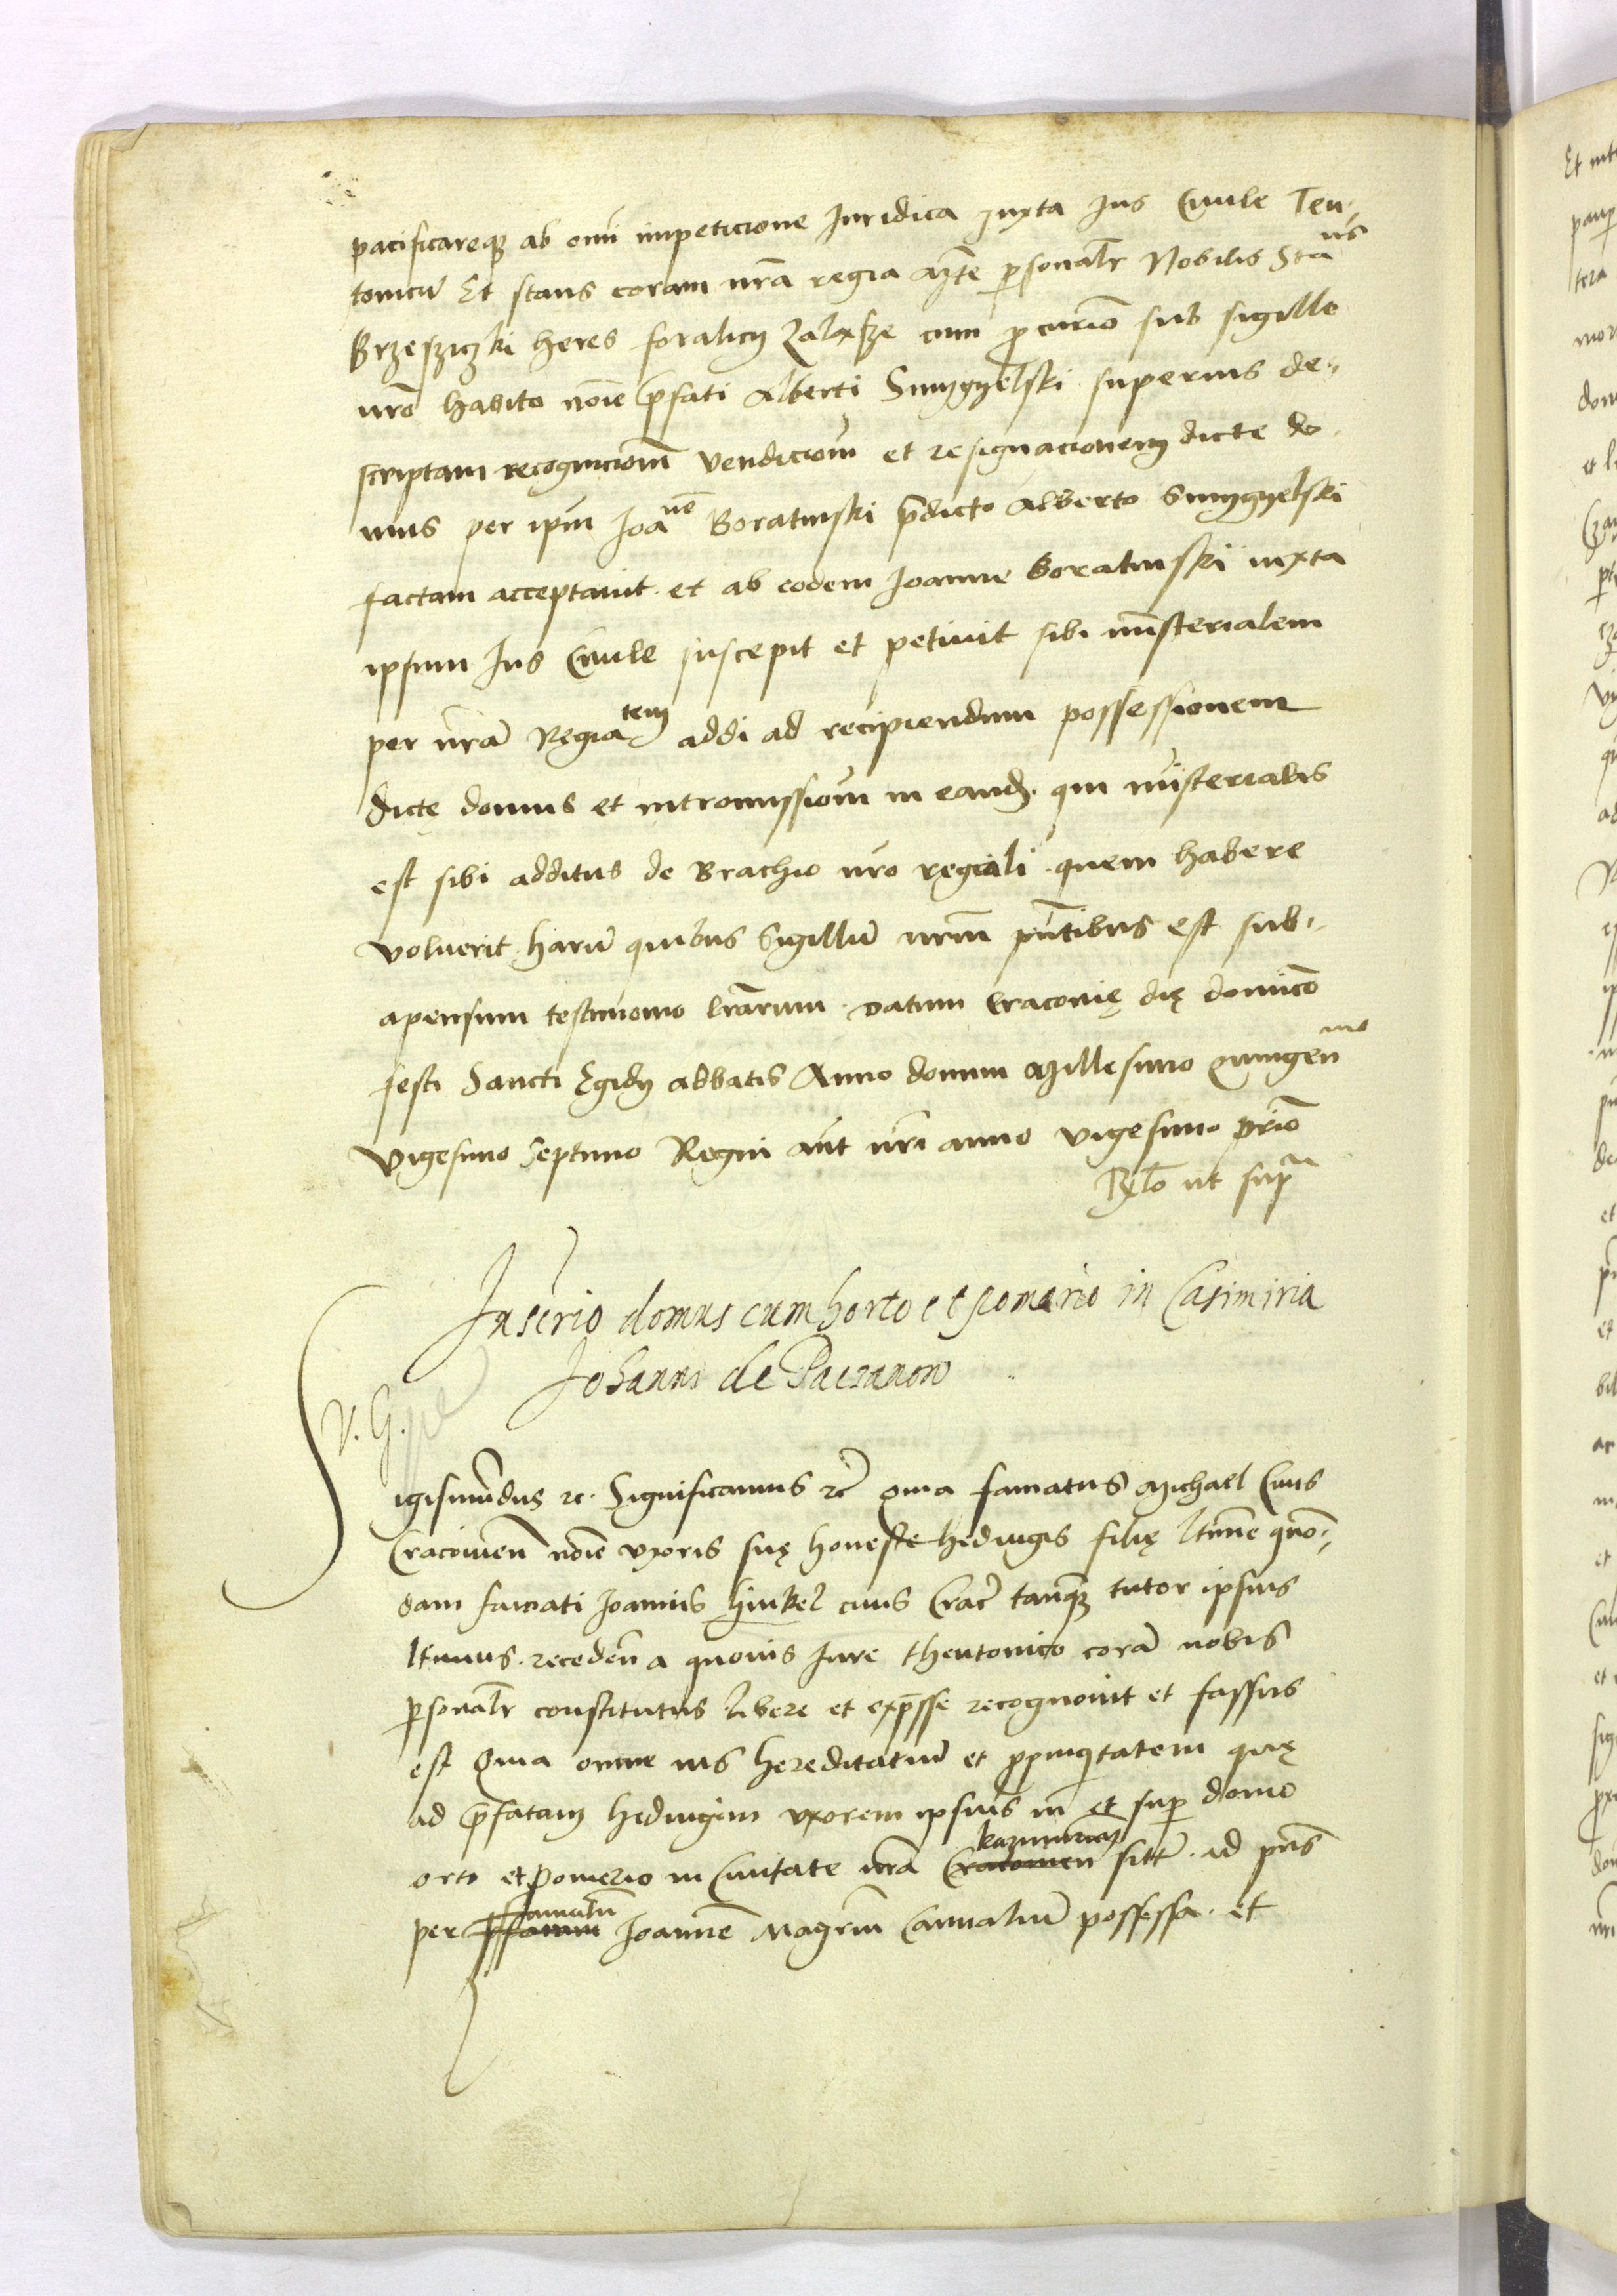 pacificareq ab omi impeticione Juridica Juxta Jus Ciuile Teu-
tonicu Et stans coram nra regia Mte psonalr Nobilis Staus
Brzesziczki heres foralicz cum pcurio sub sigillo
nro habito noie pfati Alberti Smygyelski superius de-
scriptam recognicionem Vendiciom et resignacionem dicte do-
mus per ipm Joane Boratinski pdicto Alberto Smygyelski
factam acceptauit et ab eodem Joanne Boratinski iuxta
ipsum Jus Ciuile suscepit et petiuit sibi mnsterialem
per nram Regiatem addi ad recipiendum possessionem
dicte domus et intromissiom in eand. qui misterialis
est sibi additus de Brachio nro regiali quem habere
voluerit haru quibus Sigillu nrm pntibus est sub-
apensum testimonio lrarum datum Cracouie die domico
festi Sancti Egidy abbatis Anno domini Millesimo Quingenmo
Vigesimo Septimo Regni aut nri anno vigesimo prio
Rlo ut supa
Inscrio domus cum horto et pomario in Casimiria
Johanni de Paczanow
V. G.
Sigismundus rc. Significamus rc Quia famatus Michael Ciuis
Cracouien noie vxoris sue honeste hedwigis filie ltime quo-
dam famati Joannis hinkel ciuis Crac tanq tutor ipsius
ltimus. receden a quouis Jure theutonico cora nobis
psonalr constitutus libere et expsse recognouit et fassus
est Quia omne ius hereditariu et ppinqtatem que
ad pfatam hedwigim vxorem ipsius in et sup domo
orto et Pomerio in Ciuitate nra Cracouien kazimirien sitt. ad pns
per pfatum famatu Joanne Magrm possessa. et